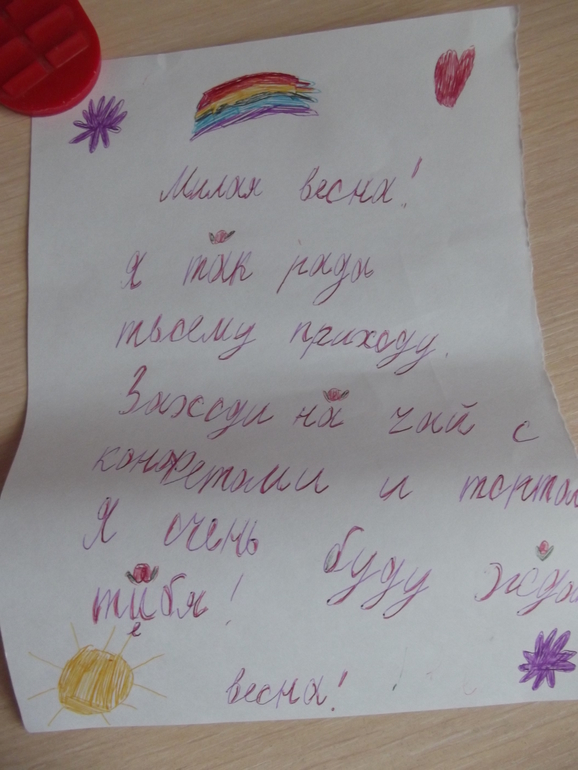 Милая весна!
Я так рада
твоему приходу.
Заходи на чай с
конфетами и
Я очень буду
тибя!
е
весна!